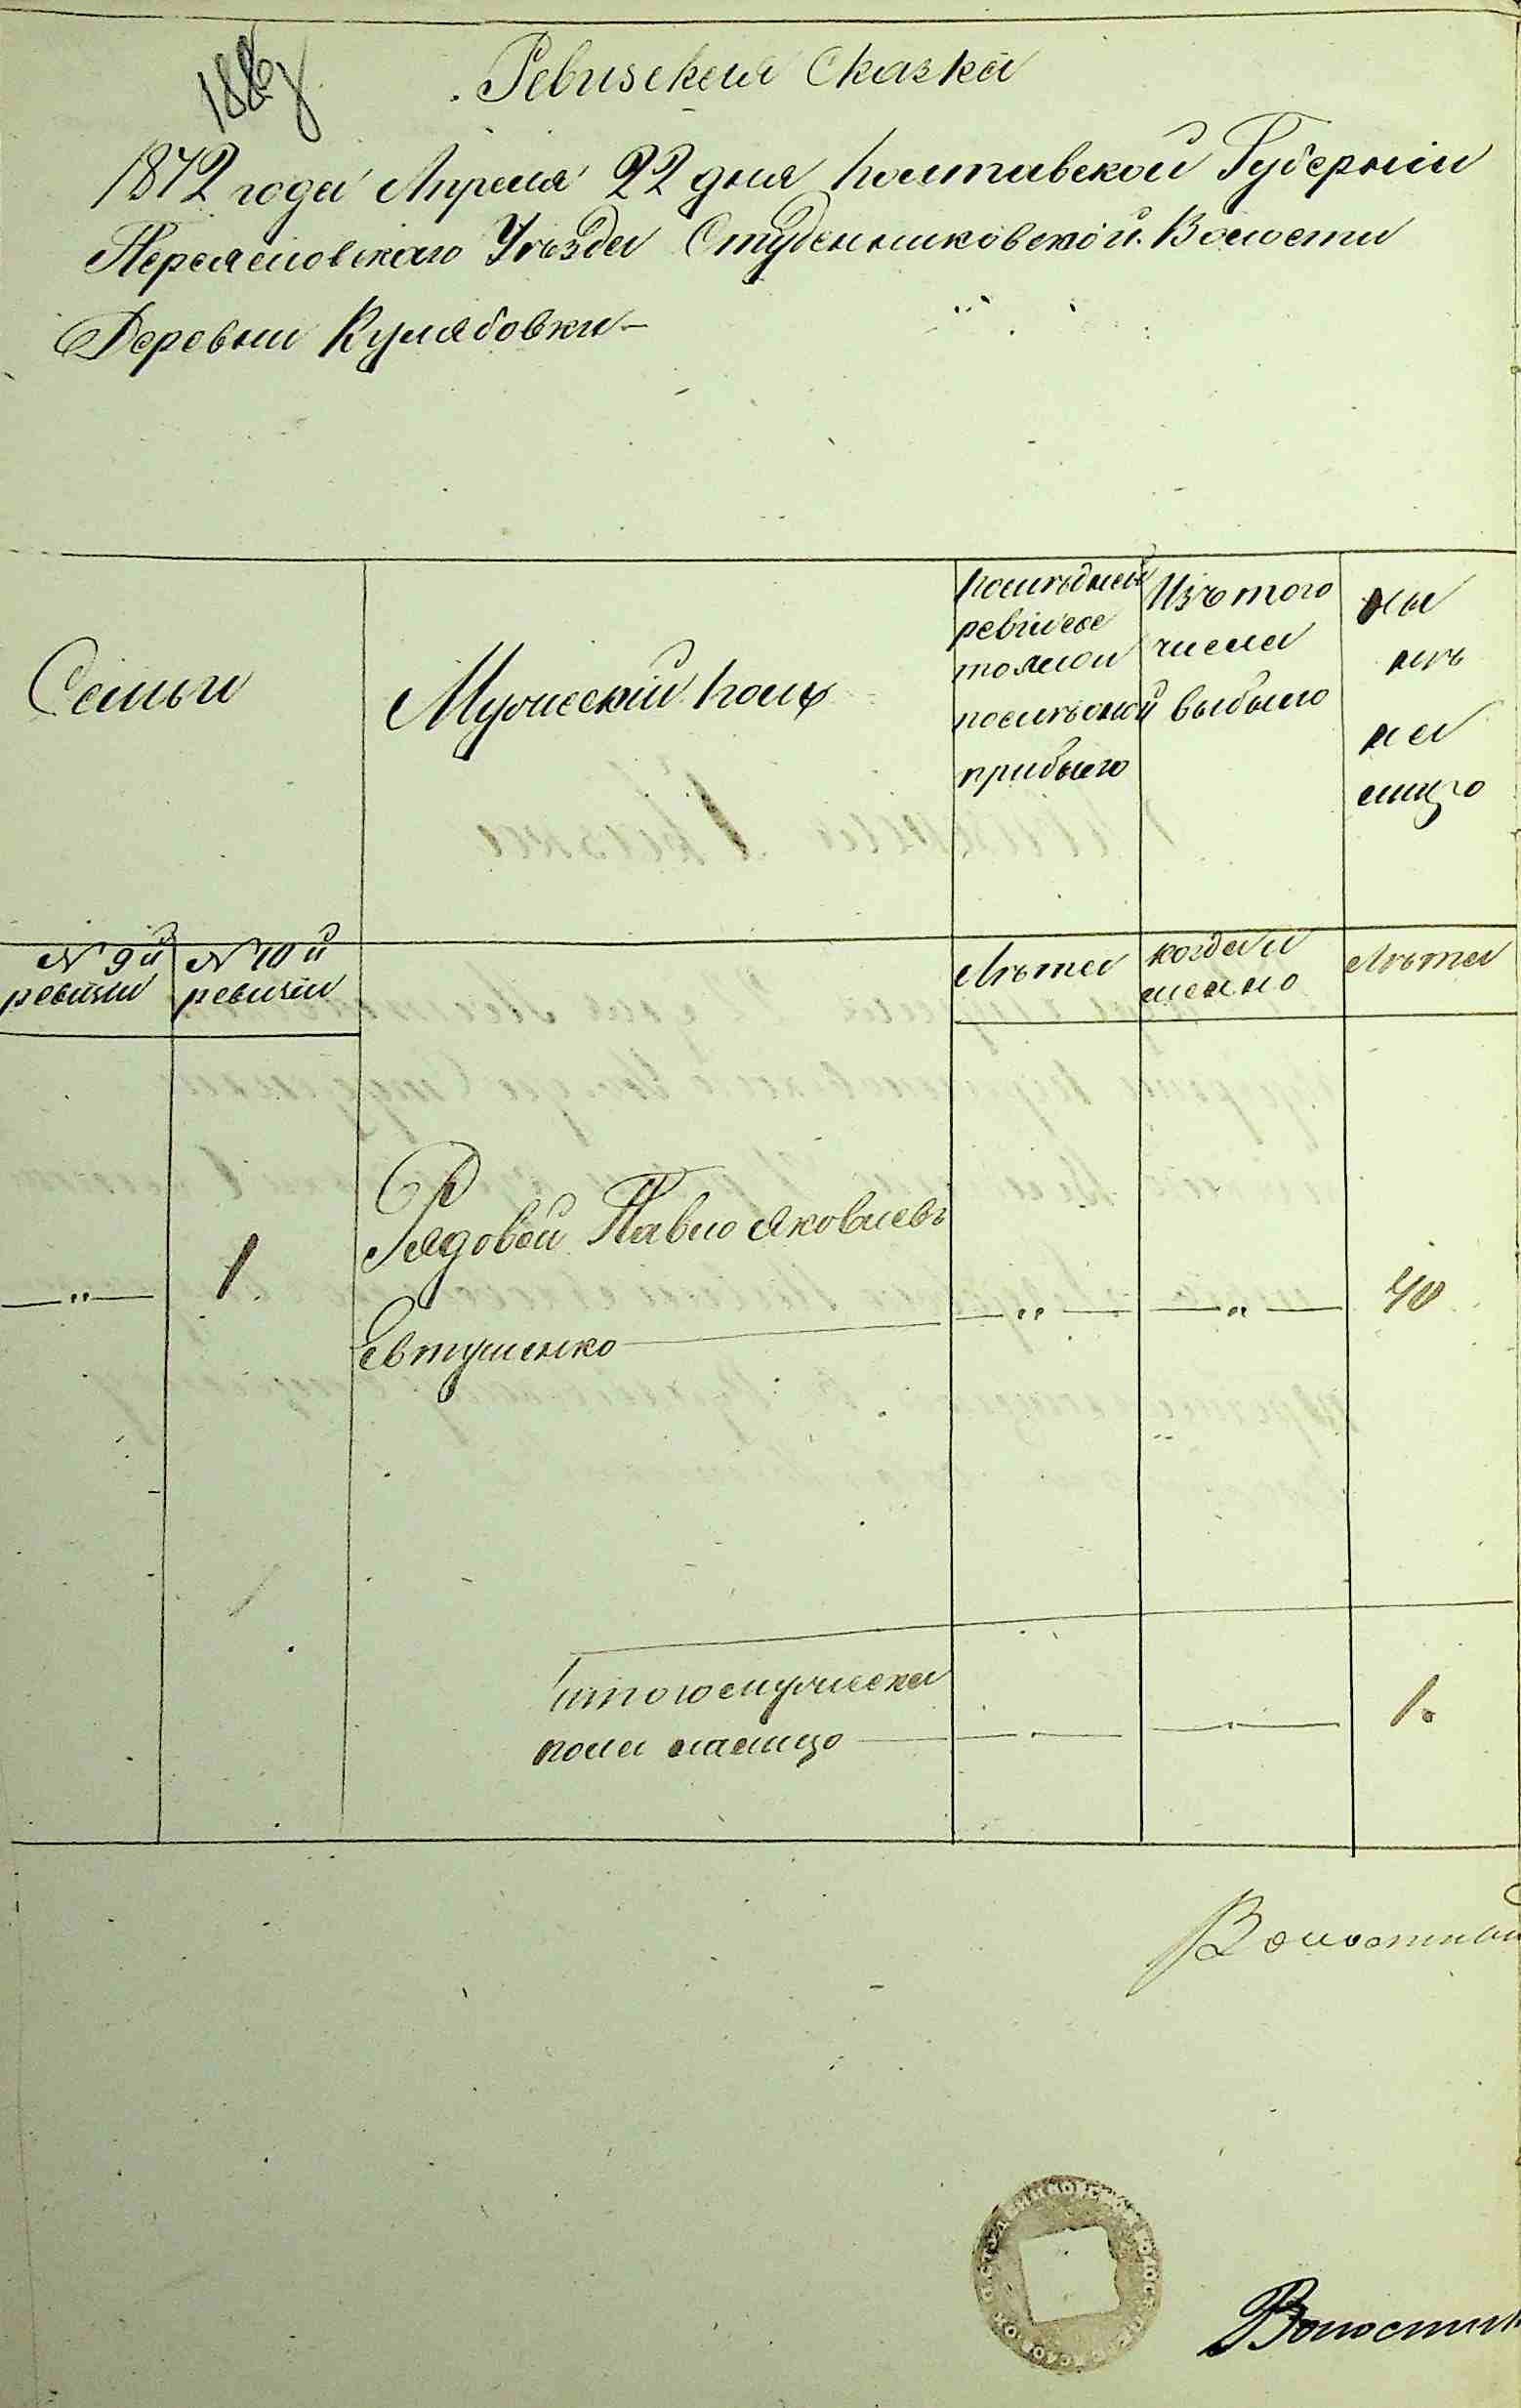 Ревизская Сказка
1872 года Апреля 22 дня Полтавской Губерніи
Переясловскаго Уѣзда Студенниковской Волости
Деревни Кулябовки
Семьи
Мужескій полъ
последней
ревіи сос
тояло и
послѣ оной
прибыло
Изъ того
числа
выбыло
ны
нѣ
на
лицо
N 9й
ревизіи
N 10й
ревизіи
Лѣта
когда и
менно
Лѣта
1.
Рядовой Павло Яковлевъ
Евтушенко
40
Итого мужеска
пола налицо
1.
Волостный
Волостн